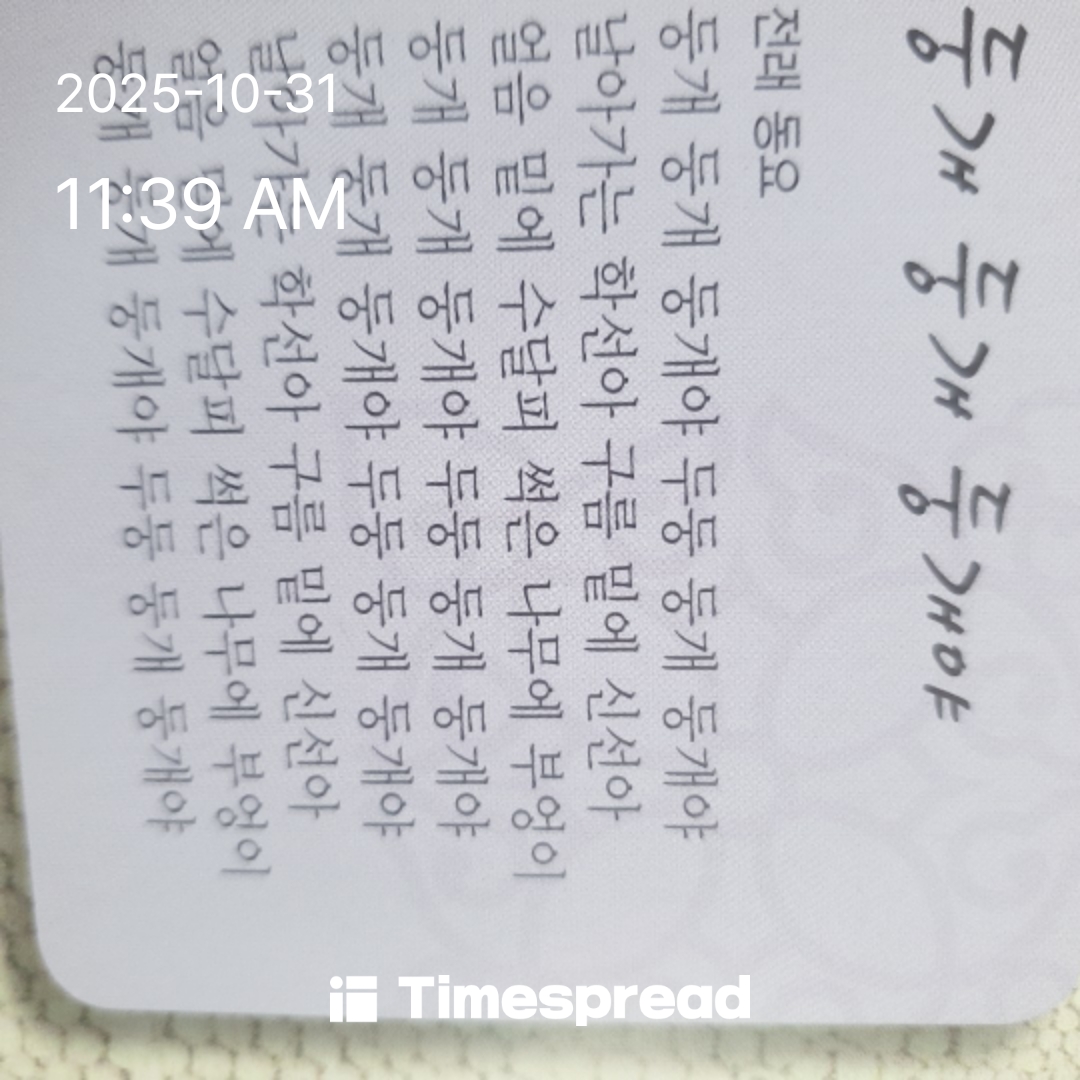 둥개 둥개 둥개야
전래 동요
둥개 둥개 둥개야 두둥 둥개 둥개야
날아가는 학선아 구름 밑에 신선아
얼음 밑에 수달피 썩은 나무에 부엉이
둥개 둥개 둥개야 두둥 둥개 둥개야
둥개 둥개 둥개야 두둥 둥개 둥개야
날아가는 학선아 구름 밑에 신선아
얼음 밑에 수달피 썩은 나무에 부엉이
둥개 둥개 둥개야 두둥 둥개 둥개야
2025-10-31
11:39 AM
Timespread